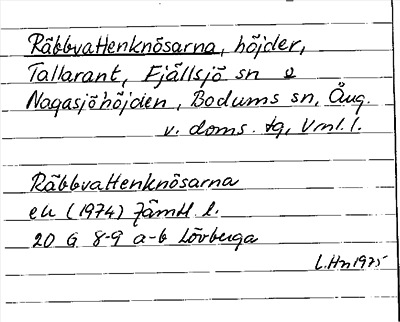 Räbbvattenknösarna, höjder,
Tallarant, Fjällsjö sn o
Nagasjöhöjden, Bodums sn, Ång.
v. doms. tg, Vrnl. l.
Räbbvattenknösarna
ek (1974) Jämtl. l.
20 G 8-9 a-b Lövberga
L.Hn 1975